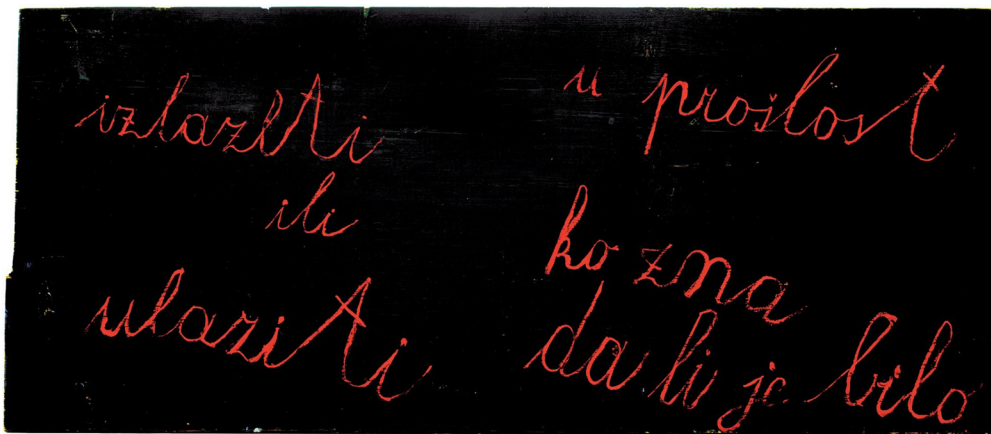 izlaziti
ili
ulaziti
u prošlost
ko zna
da li je bilo